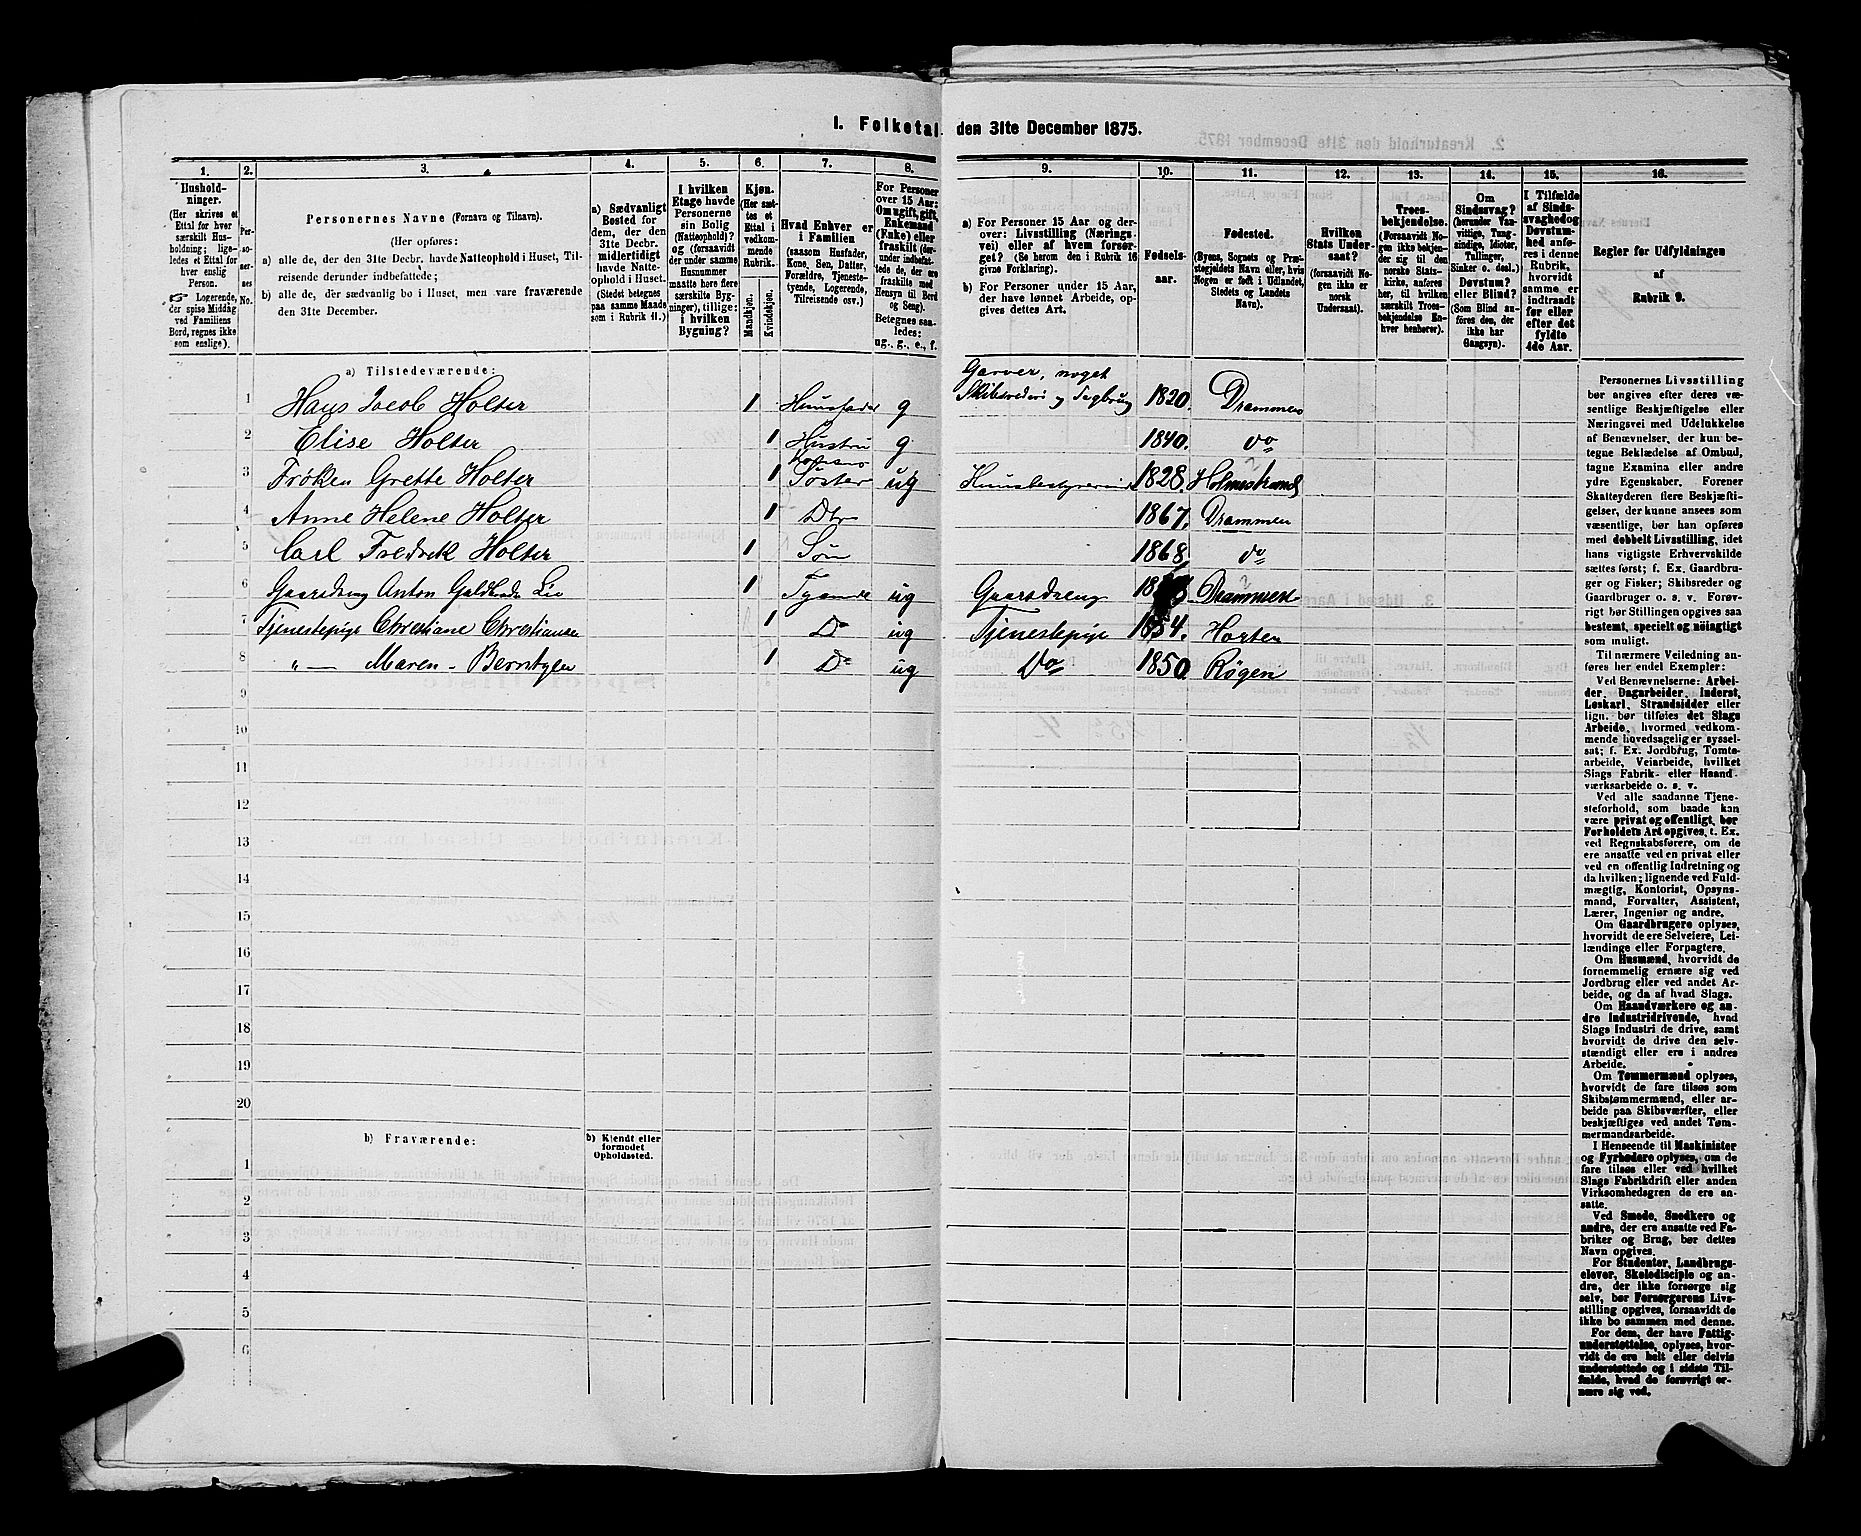 1. Folketal den 31te December 1875.
1. 2. 3. 4. 5. 6. 7. 8. 9. 10. 11. 12. 13. 14. 15. 16.
Hushold-
ninger.
(Her skrives et
Ettal for hver
særskilt Hus-
holdning; lige-
ledes et Ettal for
hver enslig
Person.
Logerende,
der spise Middag
ved Familiens
Bord, regnes ikke
som enslige).
Per-
so-
ner-
nes
No.
Personernes Navne (Fornavn og Tilnavn).
(Her opføres:
a) alle de, der den 31te Decbr. havde Natteophold i Huset, Til-
reisende derunder indbefattede;
b) alle de, der sædvanlig bo i Huset, men vare fraværende
den 31te December.
a) Sædvanligt
Bosted for
dem, der den
31te Decbr.
midlertidigt
havde Natte-
ophold i Huset.
(Stedet betegnes
paa samme Maade
som i Rubrik 11.)
I hvilken
Etage havde
Personerne
sin Bolig
(Natteophold)?
og (forsaavidt
der under samme
Husnummer
maatte høre flere
særskilte Byg-
ninger), tillige:
i hvilken
Bygning?
Kjøn.
(Her sæt-
tes et
Ettal i
vedkom-
mende
Rubrik.
Mandkjøn.
Kvindekjøn.
Hvad Enhver er
i Familien
(saasom Husfader,
Kone, Søn, Datter,
Forældre, Tjeneste-
tyende, Logerende,
Tilreisende osv.)
For Personer
over 15 Aar:
Om ugift, gift,
Enkemand
(Enke) eller
fraskilt (før-
under indbefat-
tede de, der ere
fraskilte med
Hensyn til Bord
og Seng).
Betegnes saa-
ledes:
ug., g., e., f.
a) For Personer 15 Aar og der-
over: Livsstilling (Nærings-
vei) eller af hvem forsør-
get? (Se herom den i Rubrik 16
givne Forklaring).
b) For Personer under 15 Aar,
der have lønnet Arbeide, op-
gives dettes Art.
Fødsels-
aar.
Fødested.
(Byens, Sognets og Præ-
stegjeldets Navn eller, hvis
Nogen er født i Udlandet,
Stedets og Landets
Navn).
Hvilken
Stats Under-
saat?
(forsaavidt No-
gen ikke er
norsk
Undersaat).
Troes-
bekjendelse.
(Forsaavidt No-
gen ikke bekjen-
der sig til den
norske Stats-
kirke, anføres
her, til hvilken
særskilt Troes-
bekjendelse En-
hver henhører).
Om
Sindssvag?
(herunder Van-
vittige, Tung-
sindige, Idioter,
Tullinger,
Sinker o. desl.)
Døvstum?
eller Blind?
(Som Blind an-
føres den, der
ikke har
Gangsyn).
I Tilfælde
af Sinds-
svaghed og
Døvstum-
hed anfø-
res i denne
Rubrik,
hvorvidt
samme er
indtraadt
før eller
efter det
fyldte
4de Aar.
Regler for Udfyldningen
af
Rubrik 9.
a) Tilstedeværende:
1 Hans Jacob Holter 1 Huusfader g Garver, noget Skibsrederi og Tegbrug 1820. Drammen
2 Elise Holter 1 Hustru g 1840. do
3 Frøken Grethe Holter 1 Søster ug Huusbestyrerinde 1828. Holmestrand
4 Anne Helene Holter 1 Dtr 1867. Drammen
5 Carl Fredrik Holter 1 Søn 1868 do
6 Gaardsdreng Anton Lie 1 Tyende ug Gaardsdreng Drammen
7 Tjenestepige Christiane Christiansen 1 Do ug Tjenestepige 1854. Horten
8 " — Maren 1 Do ug Do 1850. Røgen
9
10
11
12
13
14
15
16
17
18
19
20
b) Fraværende:
b) Kjendt eller
formodet
Opholdssted.
1
2
3
4
5
6
Personernes Livsstilling
bør angives efter deres væ-
sentlige Beskjæftigelse eller
Næringsvei med Udelukkelse
af Benævnelser, der kun be-
tegne Beklædelse af Ombud,
tagne Examina eller andre
ydre Egenskaber. Forener
Skatteyderen flere Beskjæfti-
gelser, der kunne ansees som
væsentlige, bør han opføres
med dobbelt Livsstilling, idet
hans vigtigste Erhvervskilde
sættes først; f. Ex. Gaardbru-
ger og Fisker; Skibsreder og
Gaardbruger o. s. v. Forøv-
rigt bør Stillingen opgives saa
bestemt, specielt og nöiagtigt
som muligt.
Til nærmere Veiledning an-
føres her endel Exempler:
Ved Benævnelserne: Arbei-
der, Dagarbeider, Inderst,
Løskarl, Strandsidder eller
lign. bør tilføies det Slags
Arbeide, hvormed vedkom-
mende hovedsagelig er syssel-
sat; f. Ex. Jordbrug, Tomte-
arbeide, Veiarbeide, hvilket
Slags Fabrik- eller Haand-
værksarbeide o. s. v.
Ved alle saadanne Tjene-
steforhold, som baade kan
være privat og offentligt, bør
Forholdets Art opgives, t. Ex.
ved Regnskabsførere, om de
ere ansatte ved en privat eller
ved en offentlig Indretning og
da hvilken; lignende ved Fuld-
mægtig, Kontorist, Opsyns-
mand, Forvalter, Assistent,
Lærer, Ingeniør og andre.
Om Gaardbrugere oplyses,
hvorvidt de ere Selveiere, Lei-
lændinge eller Forpagtere.
Om Husmænd, hvorvidt de
fornemmelig ernære sig ved
Jordbrug eller ved andet Ar-
beide, og da af hvad Slags.
Om Haandværkere og an-
dre Industridrivende, hvad
Slags Industri de drive, samt
hvorvidt de drive den selv-
stændigt eller ere i andres
Arbeide.
Om Tømmermænd oplyses,
hvorvidt de fare tilsøs som
Skibstømmermænd, eller ar-
beide paa Skibsværfter, eller
beskjæftiges ved andet Tøm-
mermandsarbeide.
I Henseende til Maskinister
og Fyrbødere oplyses, om de
fare tilsøs eller ved hvilket
Slags Fabrikdrift eller anden
Virksomhedsgren de ere an-
satte.
Ved Smede, Snedkere og
andre, der ere ansatte ved Fa-
briker og Brug, bør dettes
Navn opgives.
For Studenter, Landbrugs-
elever, Skoledisciple og an-
dre, der ikke forsørge sig
selv, bør Forsørgerens Livs-
stilling opgives, forsaavidt de
ikke bo sammen med denne.
For dem, der have Fattig-
understøttelse, oplyses, hvor-
vidt de ere helt eller delvis
understøttede og i sidste Til-
fælde, hvad de forøvrigt er-
nære sig ved.